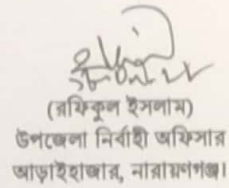 (রফিকুল ইসলাম)
উপজেলা নির্বাহী অফিসার
আড়াইহাজার, নারায়ণগঞ্জ।